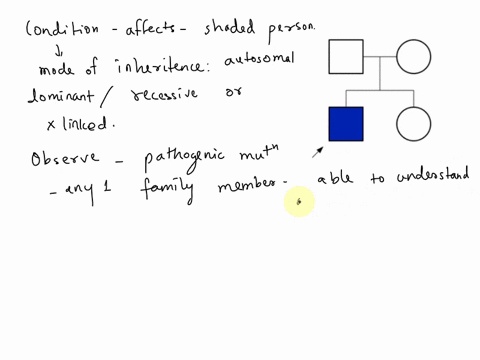 Condition - affects - shaded person.
↓
mode of inheritence: autosomal
dominant / recessive or
x linked.
Observe - pathogenic mutⁿ
- any 1 family member - able to understand